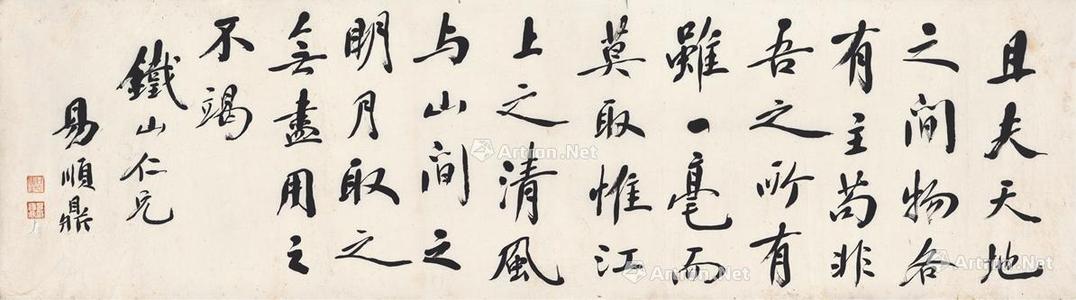 且夫天地
之間物各
有主苟非
吾之所有
雖一毫而
莫取惟江
上之清風
与山間之
明月取之
無盡用之
不竭
鐵山仁兄
易順鼎
Artron.Net
Artron.Net
Artron.Net
Artron.Net